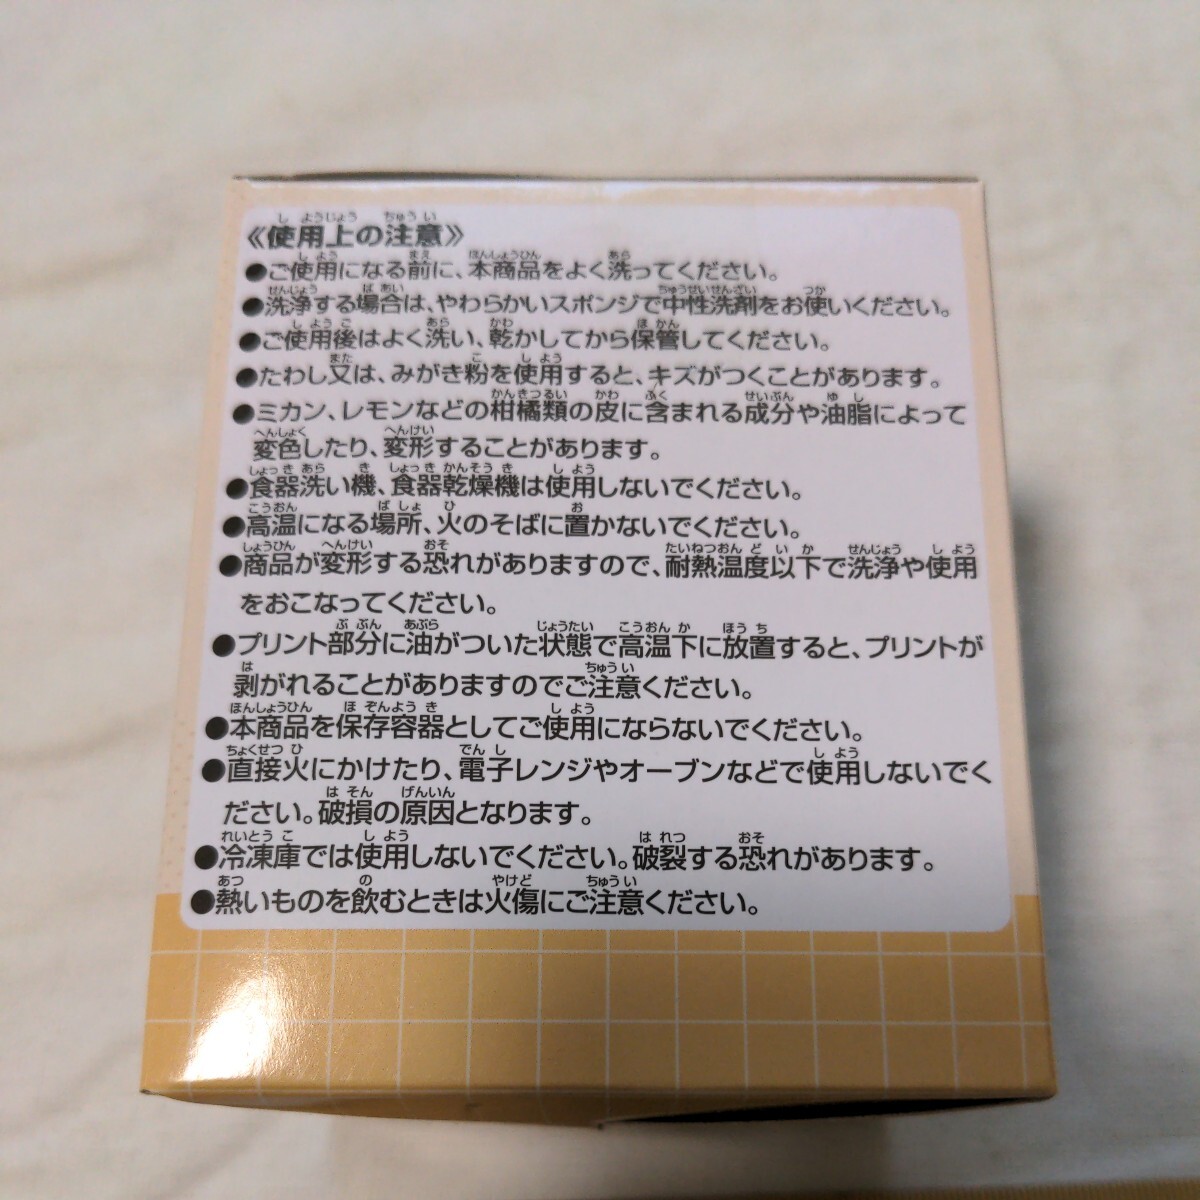 《使用上の注意》
●ご使用になる前に、本商品をよく洗ってください。
●洗浄する場合は、やわらかいスポンジで中性洗剤をお使いください。
●ご使用後はよく洗い、乾かしてから保管してください。
●たわし又は、みがき粉を使用すると、キズがつくことがあります。
●ミカン、レモンなどの柑橘類の皮に含まれる成分や油脂によって
変色したり、変形することがあります。
●食器洗い機、食器乾燥機は使用しないでください。
●高温になる場所、火のそばに置かないでください。
●商品が変形する恐れがありますので、耐熱温度以下で洗浄や使用
をおこなってください。
●プリント部分に油がついた状態で高温下に放置すると、プリントが
剥がれることがありますのでご注意ください。
●本商品を保存容器としてご使用にならないでください。
●直接火にかけたり、電子レンジやオーブンなどで使用しないでく
ださい。破損の原因となります。
●冷凍庫では使用しないでください。破裂する恐れがあります。
●熱いものを飲むときは火傷にご注意ください。